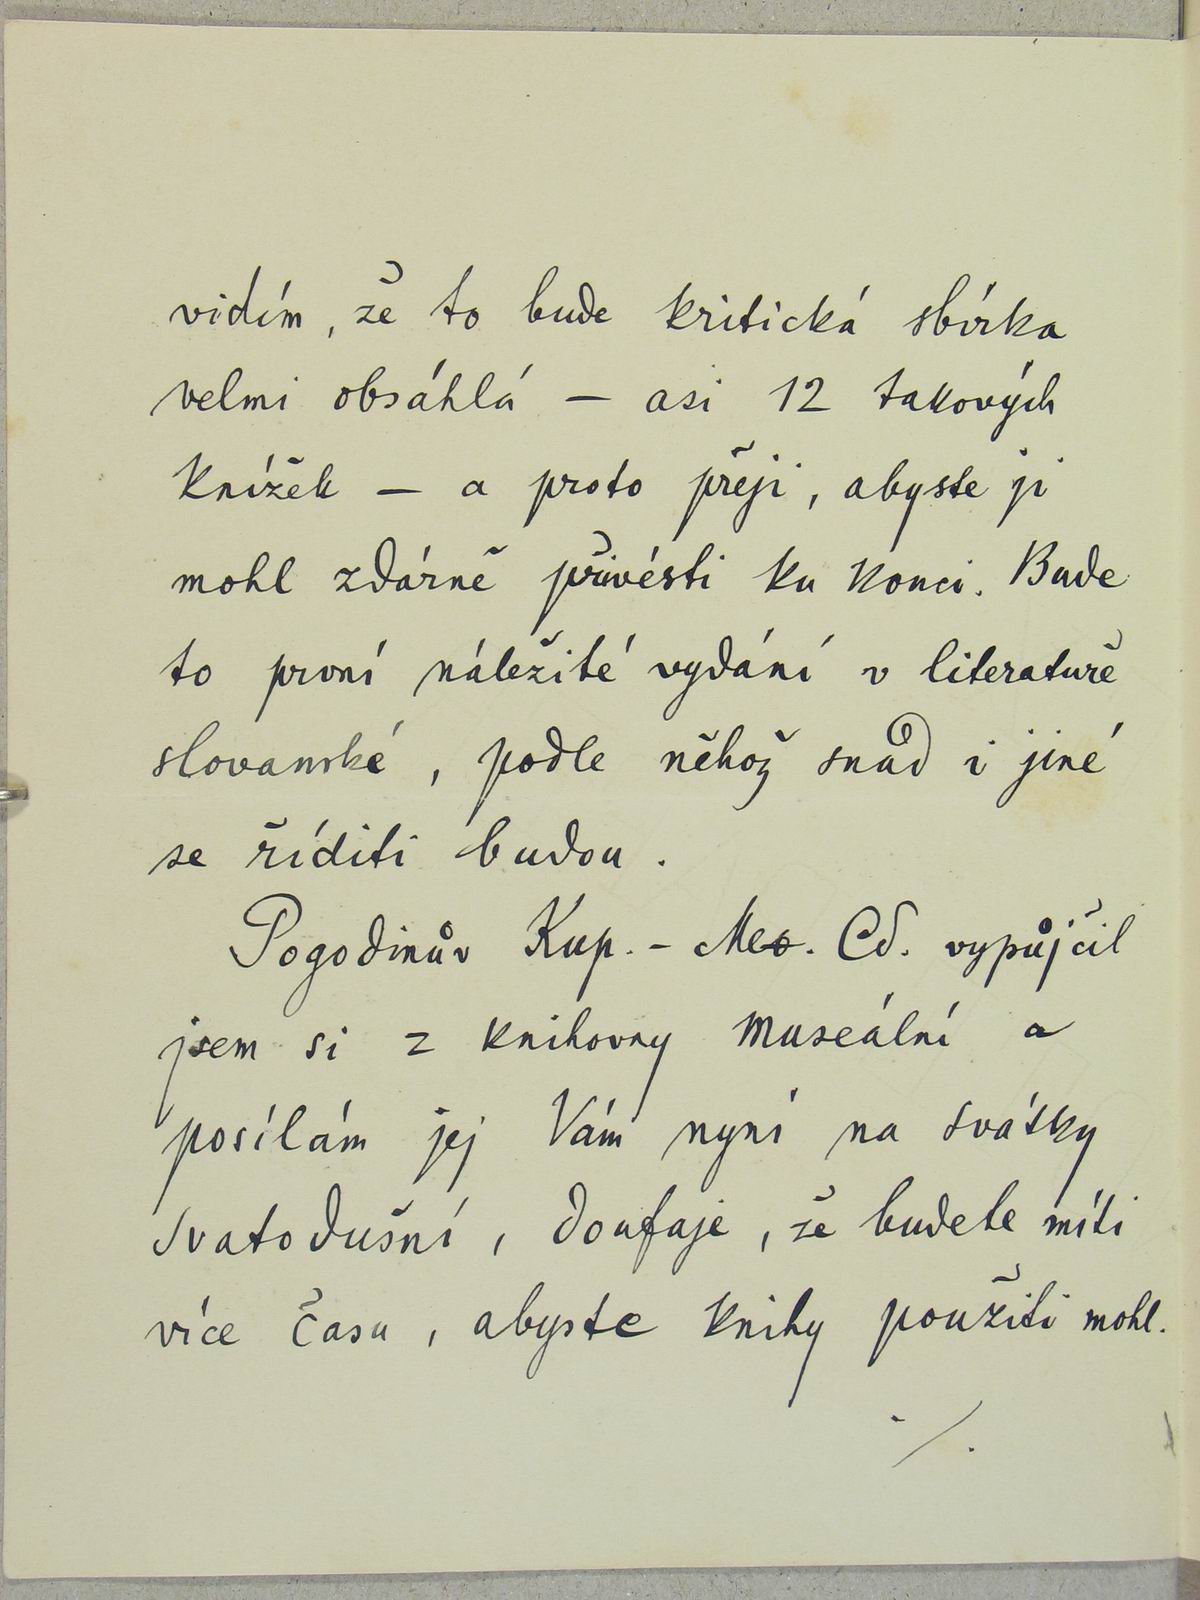 vidím, že to bude kritická sbírka
velmi obsáhlá — asi 12 takových
knížek — a proto přeji, abyste ji
mohl zdárně přivésti ku konci. Bude
to první náležité vydání v literatuře
slovanské, podle něhož snad i jiné
se říditi budou.
Pogodinův Kup. - Cd. vypůjčil
jsem si z knihovny Museální a
posílám jej Vám nyní na svátky
svatodušní, doufaje, že budete míti
více času, abyste knihy použiti mohl.
./.